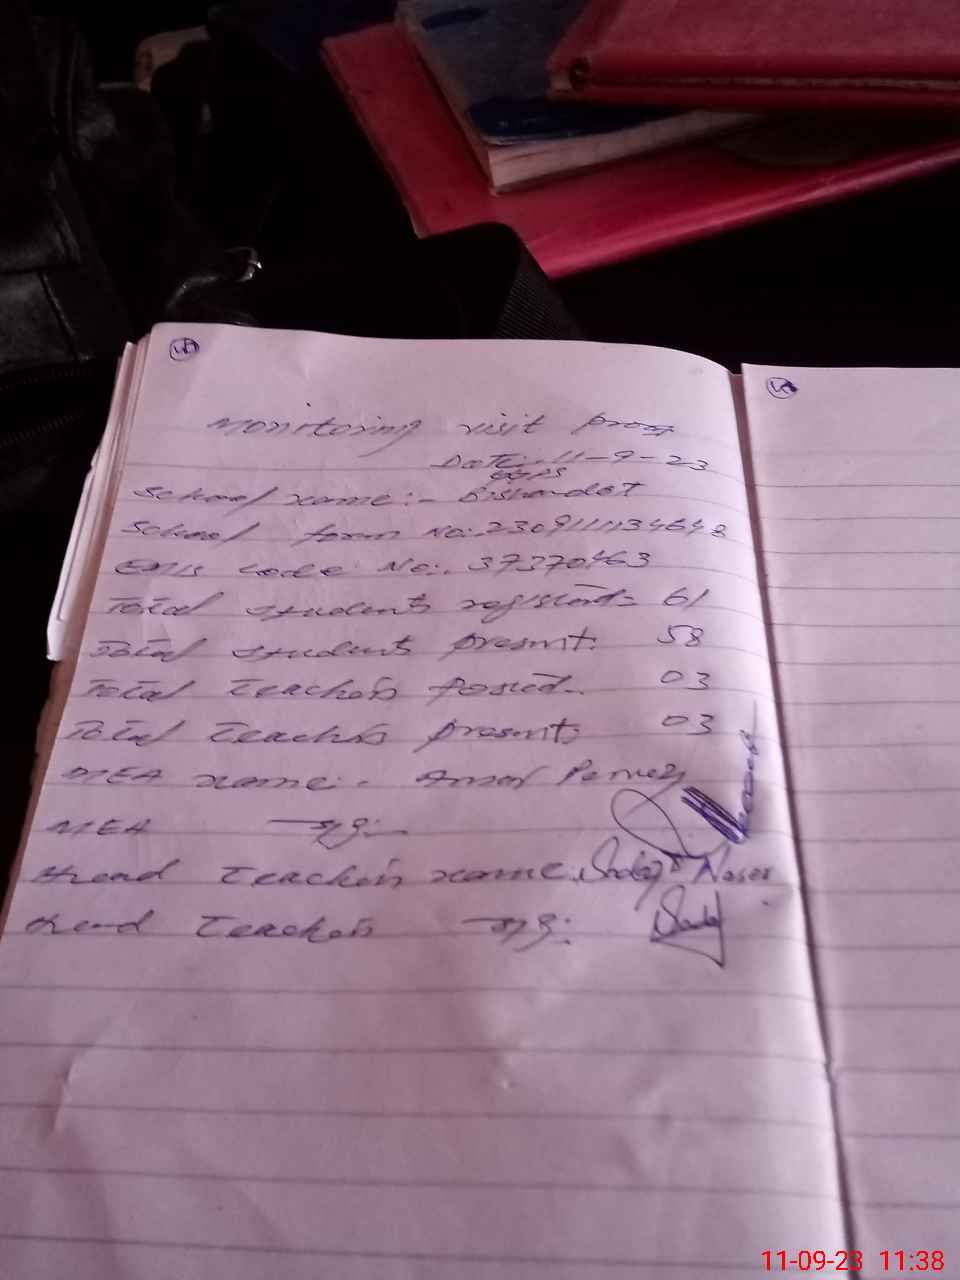 Monitoring visit proof
Date:- 11-9-23
GGPS
School name:- Bishandot
School form No:. 2309111134648
EMIS code No:. 37370463
Total students registerd:- 61
Total students present:. 58
Total Teachers Posted:. 03
Total Teachers present: 03
MEA name:. Amar Pervez
MEA sig:-
Head Teachers name:. Nasar
Head Teachers sig:.
11-09-23 11:38